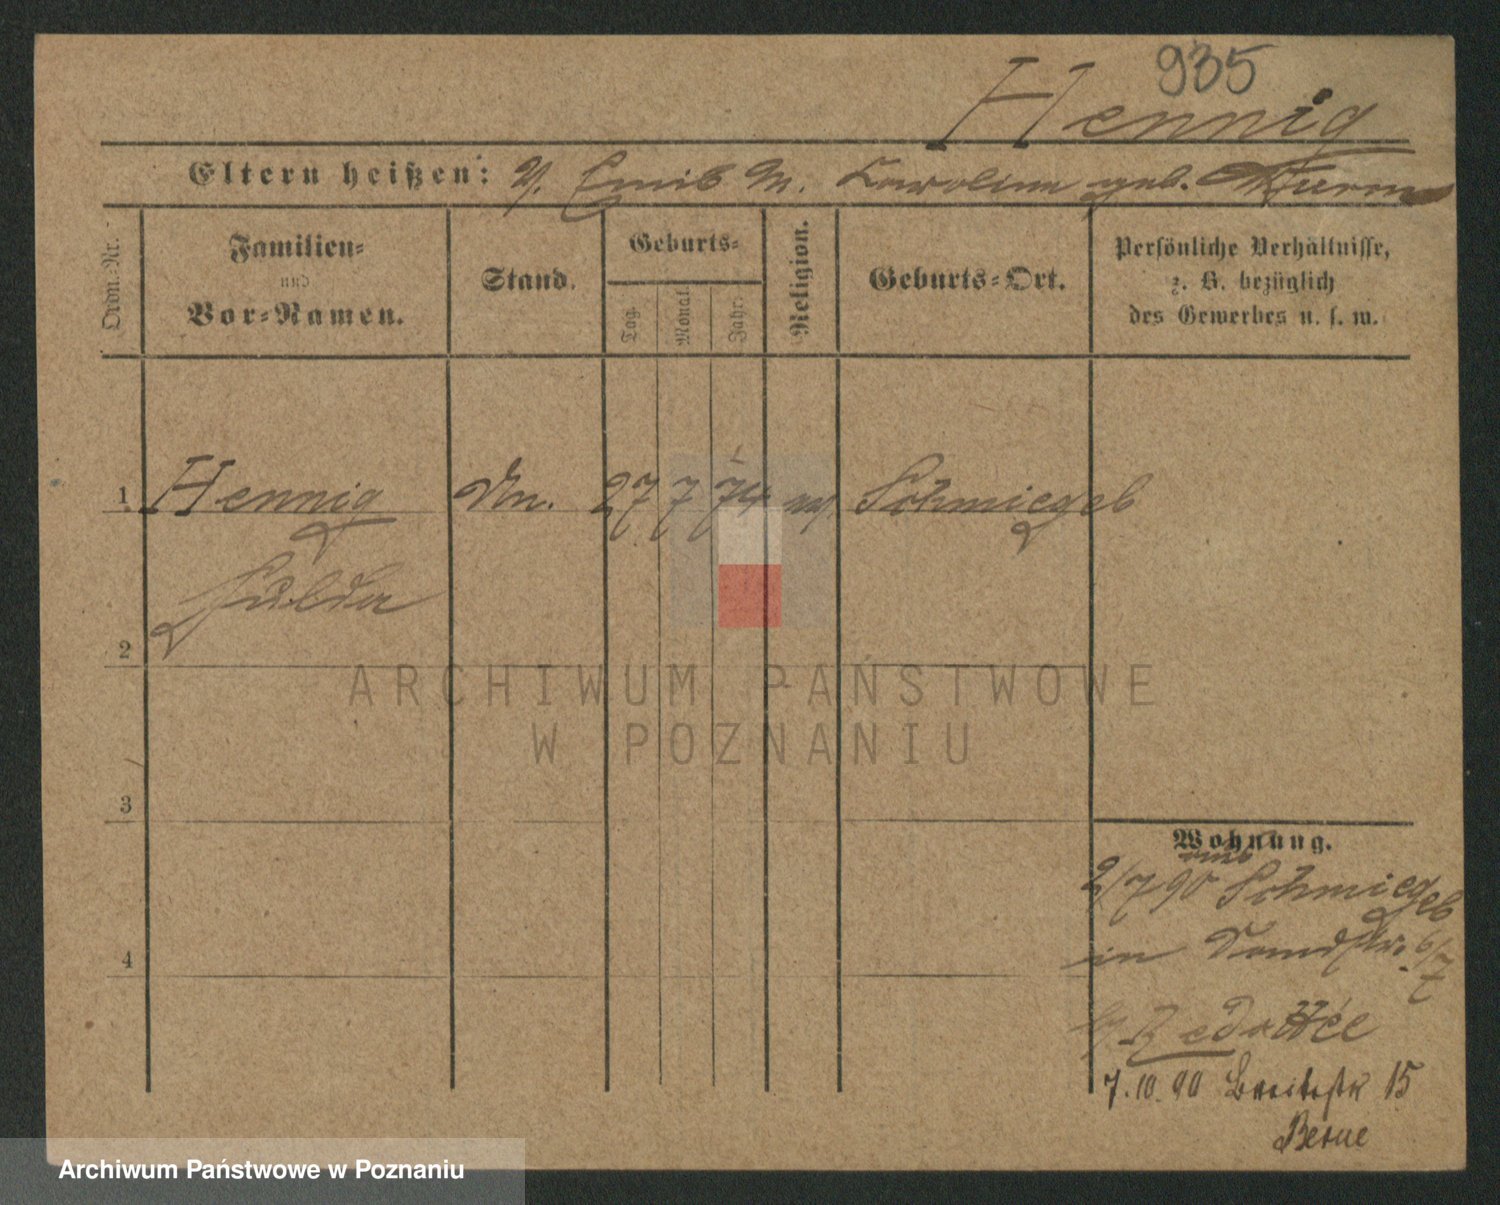 935
Hennig
Eltern heißen: V. Emil M. Karoline geb.
Ordn.-Nr.
Familien-
und
Vor-Namen.
Stand.
Geburts-
Tag.
Monat.
Jahr.
Religion.
Geburts-Ort.
Persönliche Verhältnisse,
z. B. bezüglich
des Gewerbes u. s. w.
1 Hennig 27 7 74 ev. Schmiegel
Hulda
2
3
4
ARCHIWUM PAŃSTWOWE
W POZNANIU
Wohnung.
aus
2/7 90 Schmiegel
in 6/7
7.10.90 Breitestr 15
Archiwum Państwowe w Poznaniu